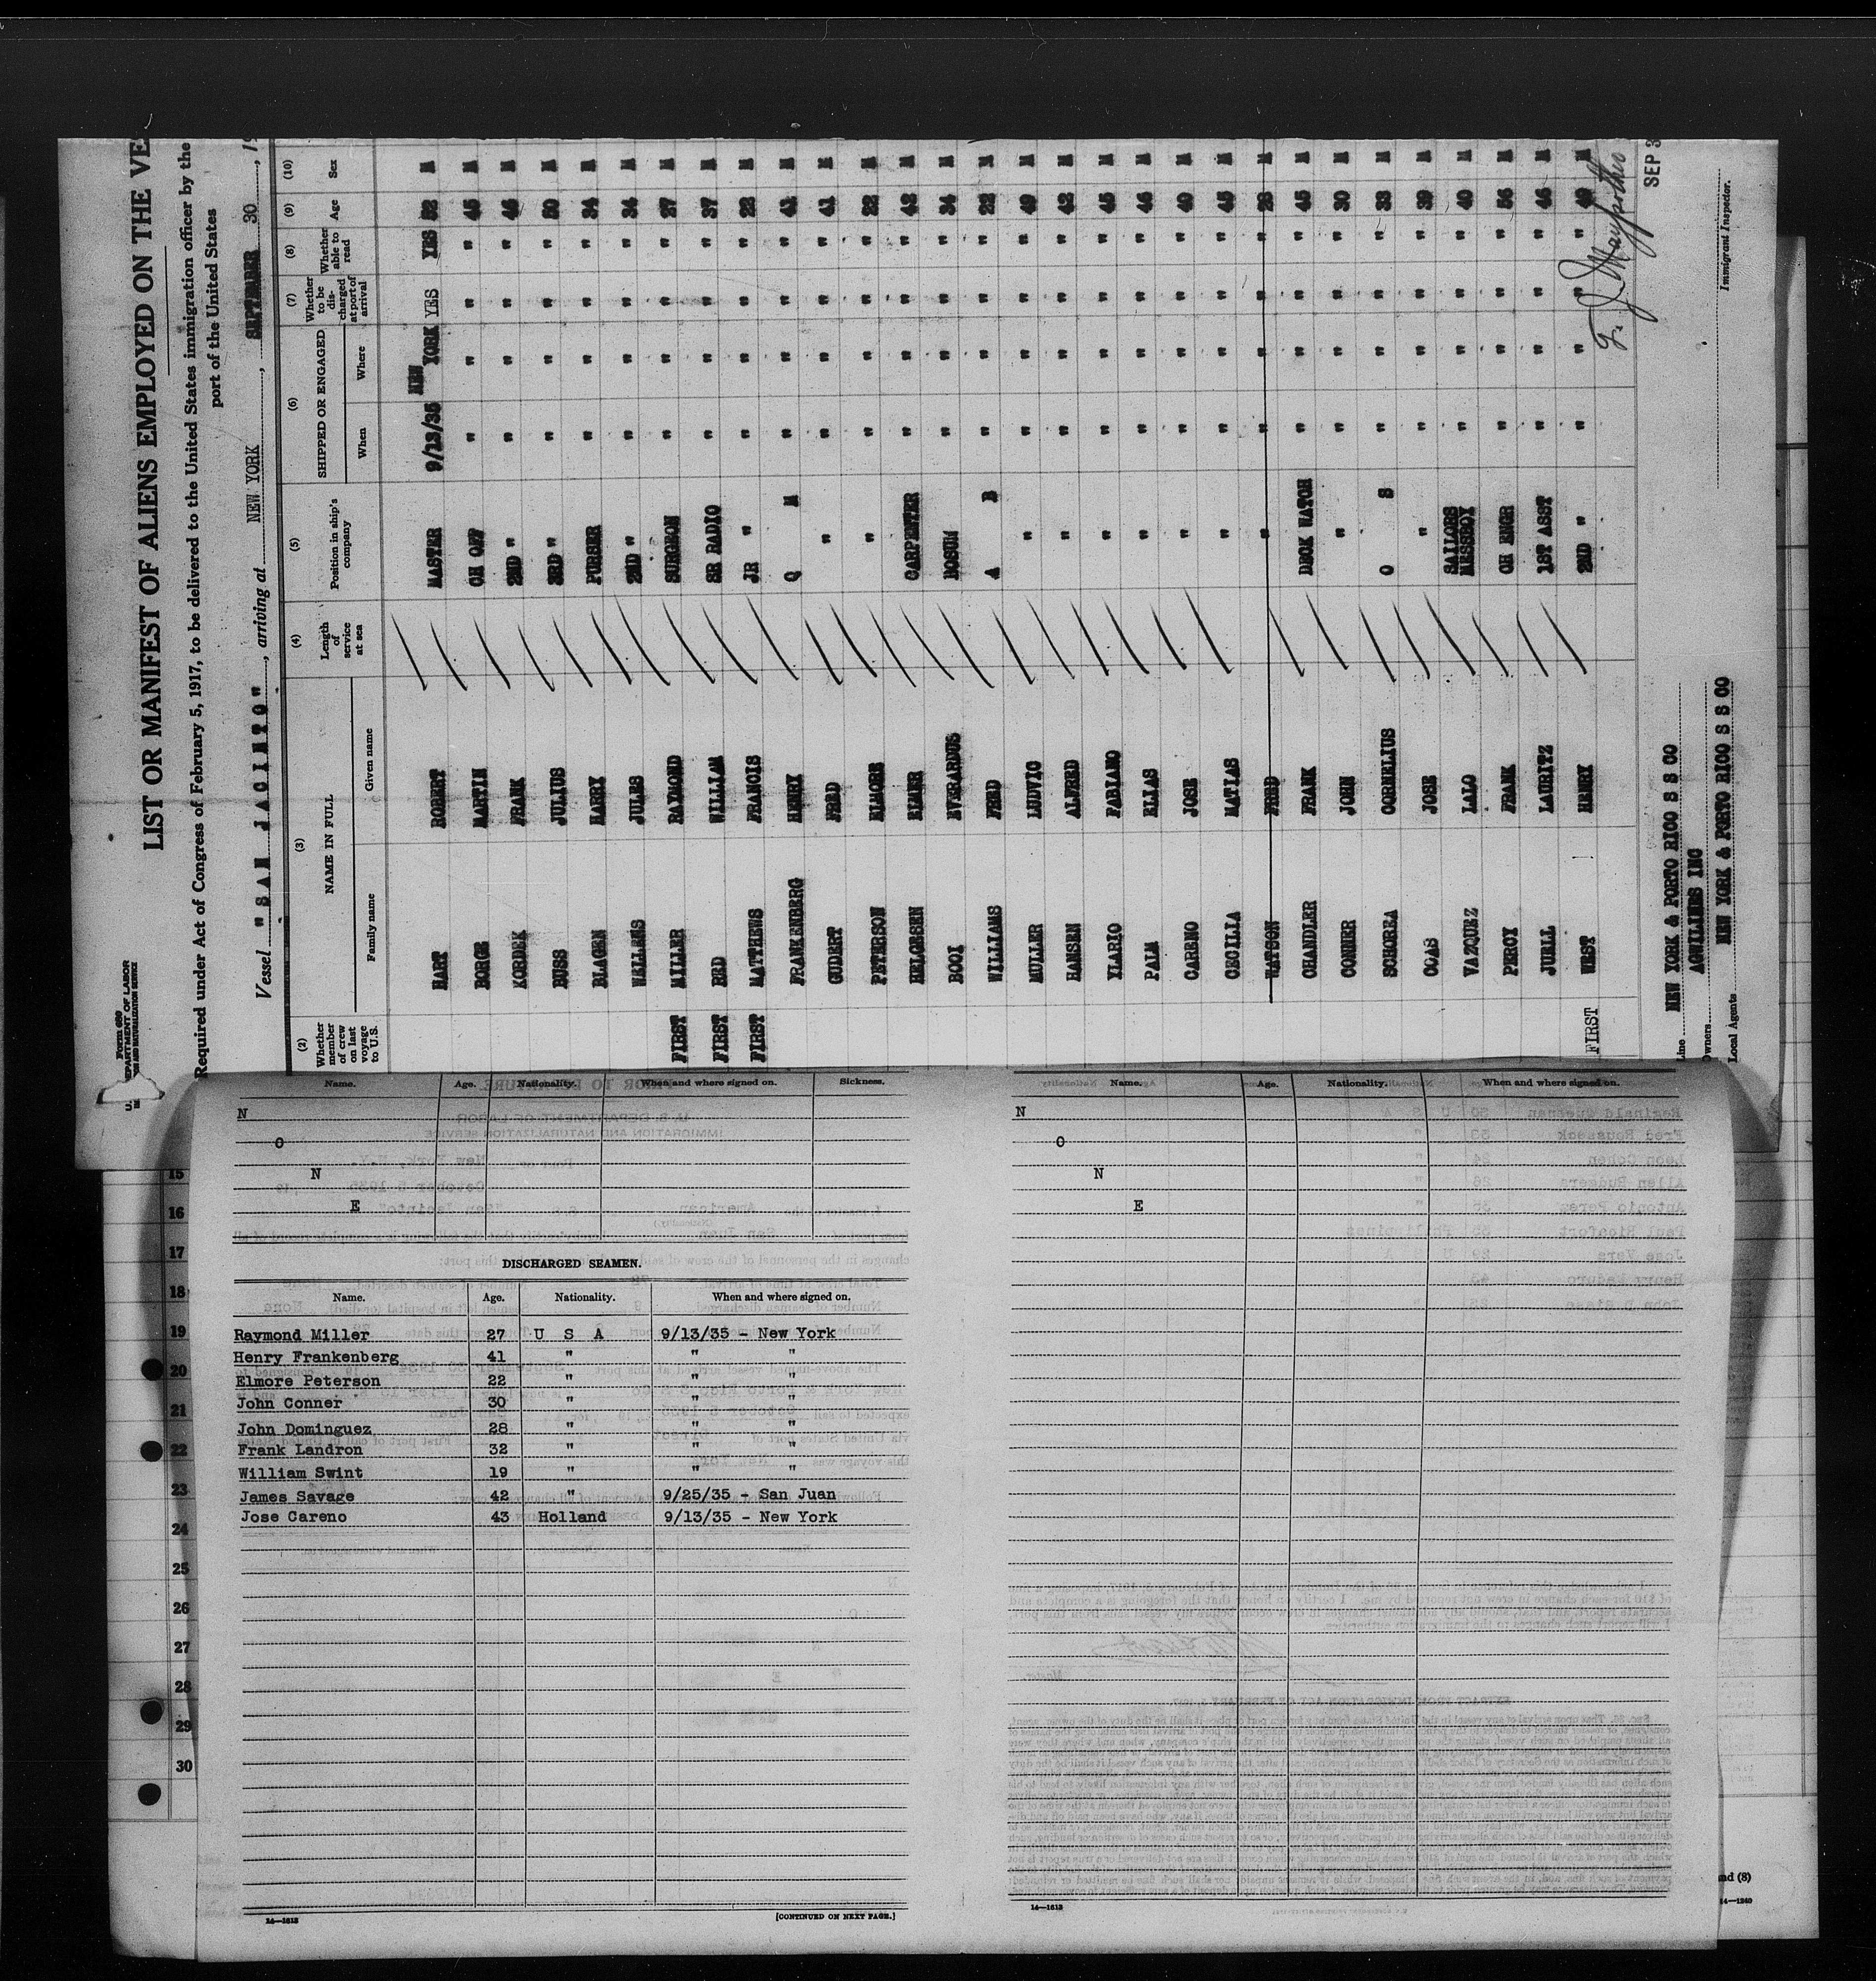 Form 689
U. S. DEPARTMENT OF LABOR
IMMIGRATION AND NATURALIZATION SERVICE
LIST OR MANIFEST OF ALIENS EMPLOYED ON THE VE
Required under Act of Congress of February 5, 1917, to be delivered to the United States immigration officer by the
port of the United States
Vessel "SAN JACINTO", arriving at NEW YORK, SEPTEMBER 30, 19
(2) Whether member of crew on last voyage to U.S. (3) NAME IN FULL Family name Given name (4) Length of service at sea (5) Position in ship's company (6) SHIPPED OR ENGAGED When Where (7) Whether to be discharged at port of arrival (8) Whether able to read (9) Age (10) Sex
HART ROBERT MASTER 9/13/35 NEW YORK YES YES 52 M
BORGE MARTIN CH OFF " " " " 45 M
KORDEK FRANK 2ND " " " " " 46 M
BUSS JULIUS 3RD " " " " " 50 M
BLAGEN HARRY PURSER " " " " 34 M
WELLENS JULES 2ND " " " " " 34 M
FIRST MILLER RAYMOND SURGEON " " " " 27 M
FIRST RED WILLIAM SR RADIO " " " " 37 M
FIRST MATTHEWS FRANCIS JR " " " " " 22 M
FRANKENBERG HENRY Q M " " " " 41 M
GUDERT FRED " " " " " 41 M
PETERSON ELMORE " " " " " 22 M
HELGESEN ELMER CARPENTER " " " " 42 M
BOOI EVERARDUS BOSUN " " " " 34 M
WILLIAMS FRED A B " " " " 22 M
MULLER LUDVIG " " " " " 49 M
HANSEN ALFRED " " " " " 42 M
YLARIO FABIANO " " " " " 45 M
PALM ELIAS " " " " " 46 M
CARENO JOSE " " " " " M
CECILIA MATIAS " " " " " 45 M
WATSON FRED " " " " " M
CHANDLER FRANK DECK WATCH " " " " 45 M
CONNER JOHN " " " " " 30 M
SCHOREA CORNELIUS O S " " " " 33 M
COAS JOSE " " " " " 39 M
VAZQUEZ LALO SAILORS MESSBOY " " " " 40 M
PERCY FRANK CH ENGR " " " " 56 M
JUELL LAURITZ 1ST ASST " " " " 46 M
FIRST WEST HENRY 2ND " " " " " 49 M
SEP 3
Line NEW YORK & PORTO RICO S S CO
Owners AGWILINES INC
Local Agents NEW YORK & PORTO RICO S S CO
Immigrant Inspector.
Name. Age. Nationality. When and where signed on. Sickness.
N
O
N
E
DISCHARGED SEAMEN.
Name. Age. Nationality. When and where signed on.
Raymond Miller 27 U S A 9/13/35 - New York
Henry Frankenberg 41 " " "
Elmore Peterson 22 " " "
John Conner 30 " " "
John Dominguez 28 " " "
Frank Landron 32 " " "
William Swint 19 " " "
James Savage 42 " 9/25/35 - San Juan
Jose Careno 43 Holland 9/13/35 - New York
14—1613
[CONTINUED ON NEXT PAGE.]
Name. Age. Nationality. When and where signed on.
N
O
N
E
14—1613
15
16
17
18
19
20
21
22
23
24
25
26
27
28
29
30
nd (8)
14—1240